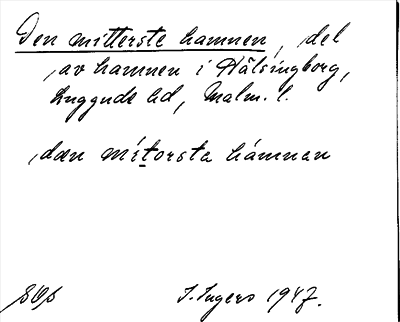 Den mitterste hamnen, del
av hamnen i Hälsingborg,
Luggude hd, Malm. l.
dæn mítorsta hámnan
SOS
I. Ingers 1947.